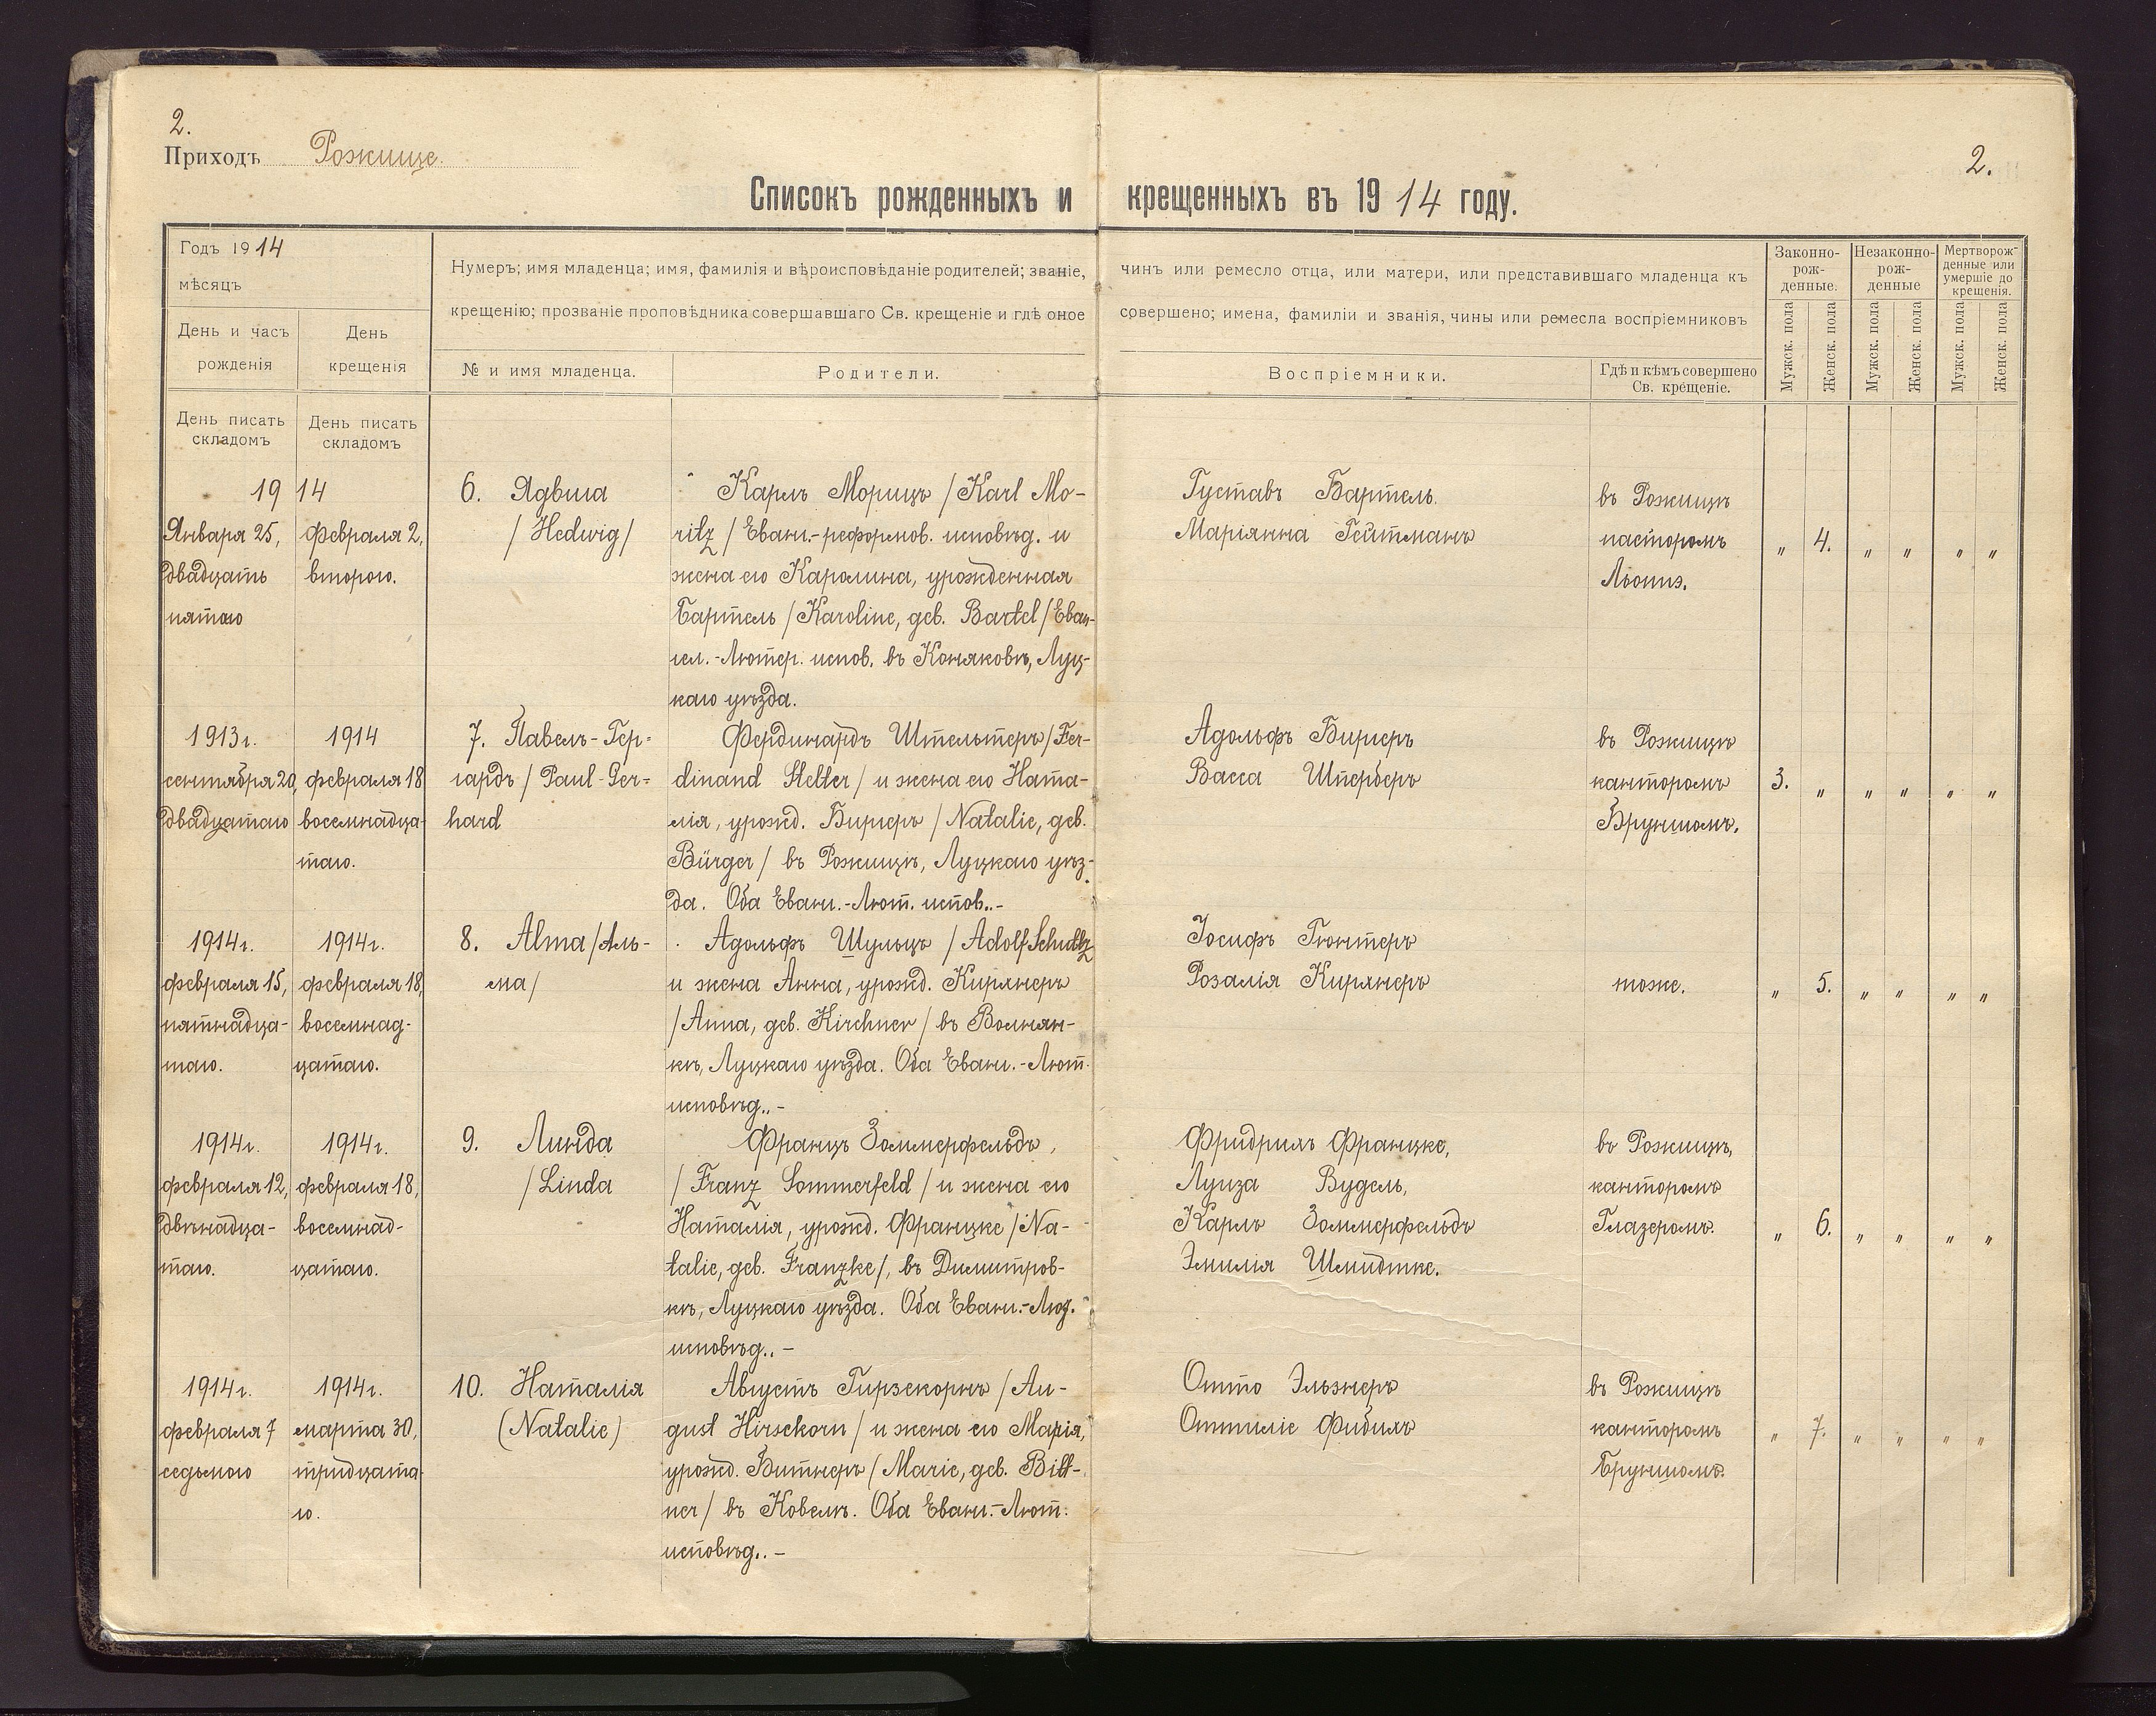 2.
Приходъ Рожище.
2.
Списокъ рожденныхъ и крещенныхъ въ 1914 году.
Годъ 1914
мѣсяцъ
День и часъ рожденія
День крещенія
Нумеръ; имя младенца; имя, фамилія и вѣроисповѣданіе родителей; званіе, чинъ или ремесло отца, или матери, или представившаго младенца къ
крещенію; прозваніе проповѣдника совершавшаго Св. крещеніе и гдѣ оное совершено; имена, фамиліи и званія, чины или ремесла воспріемниковъ
№ и имя младенца.
Родители.
Воспріемники.
Гдѣ и кѣмъ совершено
Св. крещеніе.
Законно-
рож-
денные.
Незаконно-
рож-
денные
Мертворож-
денные или
умершіе до
крещенія.
Мужск. пола
Женск. пола
Мужск. пола
Женск. пола
Мужск. пола
Женск. пола
День писать
складомъ
День писать
складомъ
19 14
Января 25,
двадцать
пятаго
февраля 2,
второго.
6. Ядвига
/ Hedwig /
Карлъ Морицъ / Karl Mo-
ritz / Еванг.-реформов. исповѣд. и
жена его Каролина, урожденная
Бартель / Karoline, geb. Bartel / Еван-
гел.-Лютер. испов. въ Коняковѣ, Луц-
каго уѣзда.
Густавъ Бартель.
Маріянна Гейтманъ
въ Рожищѣ
пасторомъ
„ 4. „ „ „ „
1913 г.
сентября 20,
двадцатаго
1914
февраля 18
восемнадца-
таго.
7. Павелъ-Гер-
гардъ / Paul-Ger-
hard
Фердинардъ Штельтеръ / Fer-
dinand Stelter / и жена его Ната-
лія, урожд. Биргеръ / Natalie, geb.
Bürger / въ Рожищѣ, Луцкаго уѣз-
да. Оба Еванг.-Лют. испов..-
Адольфъ Биргеръ
Васса Шперберъ
въ Рожищѣ
канторомъ
3. „ „ „ „ „
1914 г.
февраля 15,
пятнадца-
таго.
1914 г.
февраля 18,
восемнад-
цатаго.
8. Alma / Аль-
ма /
Адольфъ Шульцъ / Adolf Schultz
и жена Анна, урожд. Кирхнеръ
/ Anna, geb. Kirchner / въ Волнян-
кѣ, Луцкаго уѣзда. Оба Еванг.-Лют.
исповѣд..-
Іосифъ Гюнтеръ
Розалія Кирхнеръ
тоже.
„ 5. „ „ „ „
1914 г.
февраля 12,
двѣнадца-
таго.
1914 г.
февраля 18,
восемнад-
цатаго.
9. Линда
/ Linda
Францъ Зоммерфельдъ,
/ Franz Sommerfeld / и жена его
Наталія, урожд. Францке / Na-
talie, geb. Franzke /, въ Димитров-
кѣ, Луцкаго уѣзда. Оба Еванг.-Лют.
исповѣд..-
Фридрихъ Францке,
Луиза Вудель,
Карлъ Зоммерфельдъ
Эмилія Шмидтке.
въ Рожищѣ,
канторомъ
Глазеромъ.
„ 6. „ „ „ „
1914 г.
февраля 7
седьмого
1914 г.
марта 30,
тридцата-
го.
10. Наталія
(Natalie)
Августъ Гирзекорнъ / Au-
gust Hirsekorn / и жена его Марія,
урожд. Битнеръ / Marie, geb. Bitt-
ner / въ Ковелѣ. Оба Еванг.-Лют.
исповѣд..-
Отто Эльзнеръ
Оттиліе Фибихъ
въ Рожищѣ
канторомъ
„ 7. „ „ „ „